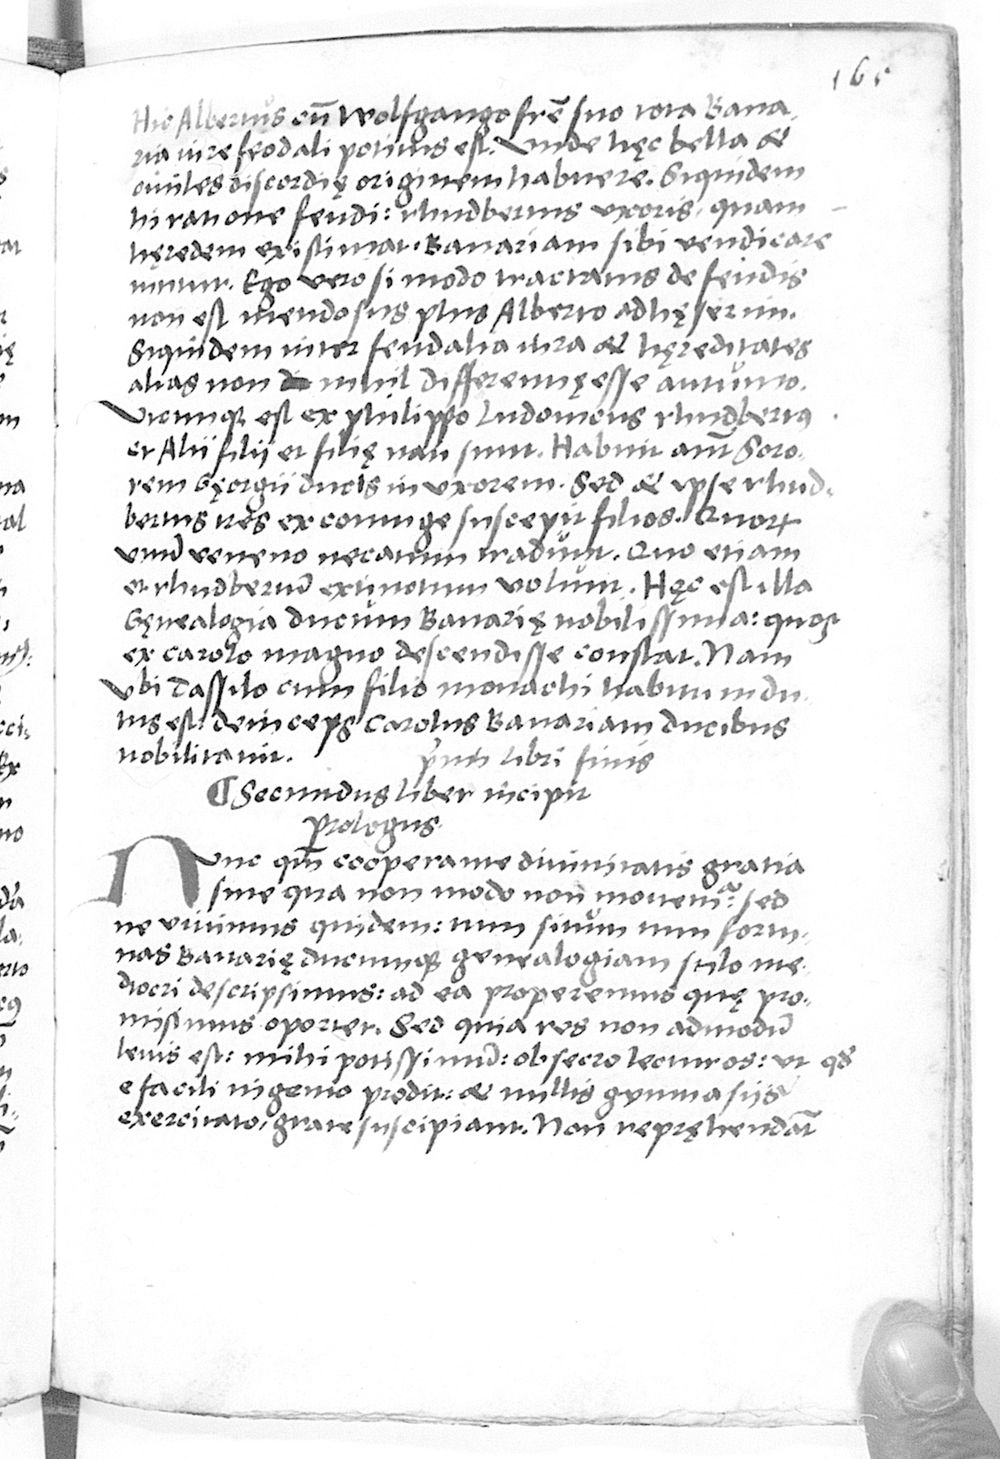 165
Hic Albertus cū Wolfgango frē suo tota Baua
ria iure feodali potitus est. Vnde hęc bella &
ciuiles discordię originem habuere. Siquidem
hi ratione feudi: rhudbertus vxoris, quam
hęredem existimat. Bauariam sibi vendicare
nitutur. Ego vero si modo tractatus de feudis
non est mendosus plus Alberto adhęserim.
Siquidem inter feudalia iura & hęreditates
alias non nihil differentię esse autumo.
Vtcunq; est ex philippo Ludouicus rhudbertꝰ
et Alii filii et filię nati sunt. Habuit aūt Soro,
rem Gęorgii ducis in vxorem. Sed & ipse rhud,
bertus tres ex coniuge suscepit filios. Quorꝝ
vnū veneno necatum tradunt. Quo etiam
et rhudbertū extinctum volunt. Hęc est illa
Gęnealogia ducum Bauarię nobilissima: quos
ex carolo magno descendisse constat. Nam
vbi Tassilo cum filio monachi habitu indu
tus est: deinceps Carolus Bauariam ducibus
nobilitauit. primi libri finis
¶ Secundus liber incipit
prologus
Nunc qm̄ cooperante diuinitatis gratia
sine qua non modo non mouemur sed
ne viuimus quidem: tum situm tum fortu,
nas Bauarię ducumq; genealogiam stilo me
diocri descripsimus: ad ea properemus quę pro,
misimus oportet. Sed quia res non admodū
leuis est: mihi potissimū: obsecro lecturos: vt qđ
e facili ingenio prodit: & nullis gymnasiis
exercitato, grate suscipiant. Non repręhendāt